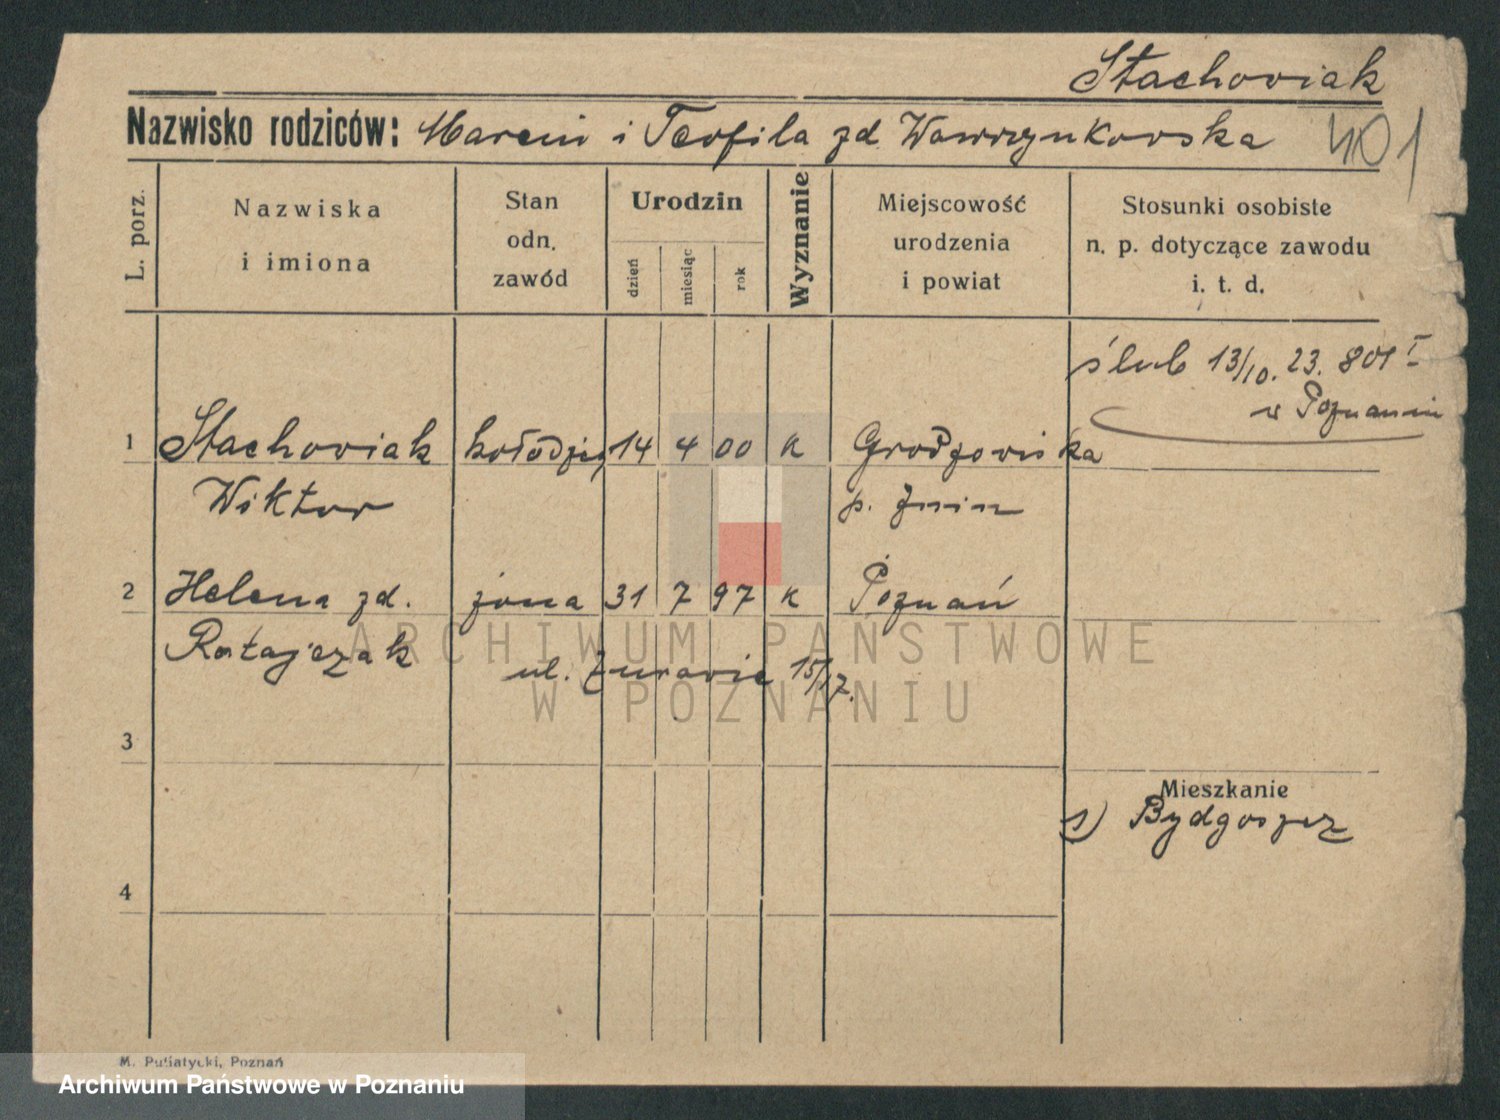 Stachoviak
Nazwisko rodziców: Marcin i Teofila zd. Wawrzynkovska
401
L. porz.
Nazwiska
i imiona
Stan
odn.
zawód
Urodzin
dzień
miesiąc
rok
Wyznanie
Miejscowość
urodzenia
i powiat
Stosunki osobiste
n. p. dotyczące zawodu
i. t. d.
ślub 13/10. 23. 801 I
w Poznaniu
1 Stachoviak kołodziej 14 4 00 k Grodzoviska
Wiktor p. Żnin
2 Helena zd. żona 31 7 97 k Poznań
Ratajczak
ul. Żuravia 15/17.
3
Mieszkanie
1) Bydgoszcz
4
M. Puliatycki, Poznań
ARCHIWUM PAŃSTWOWE
W POZNANIU
Archiwum Państwowe w Poznaniu